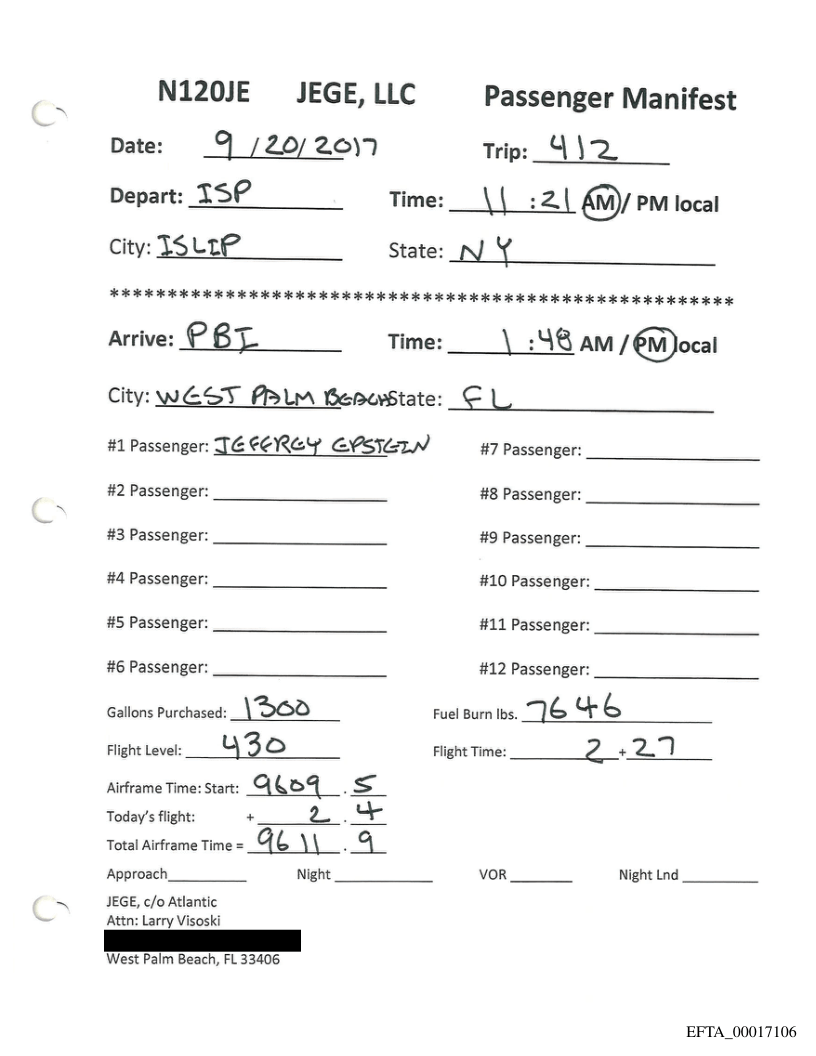 N120JE JEGE, LLC Passenger Manifest
Date: 9/20/2017 Trip: 412
Depart: ISP Time: 11:21 AM / PM local
City: ISLIP State: NY
******************************************************
Arrive: PBI Time: 1:48 AM / PM local
City: WEST PALM BEACH State: FL
#1 Passenger: JEFFREY EPSTEIN #7 Passenger:
#2 Passenger: #8 Passenger:
#3 Passenger: #9 Passenger:
#4 Passenger: #10 Passenger:
#5 Passenger: #11 Passenger:
#6 Passenger: #12 Passenger:
Gallons Purchased: 1300 Fuel Burn lbs. 7646
Flight Level: 430 Flight Time: 2 + 27
Airframe Time: Start: 9609.5
Today's flight: + 2.4
Total Airframe Time = 9611.9
Approach Night VOR Night Lnd
JEGE, c/o Atlantic
Attn: Larry Visoski
West Palm Beach, FL 33406
EFTA_00017106